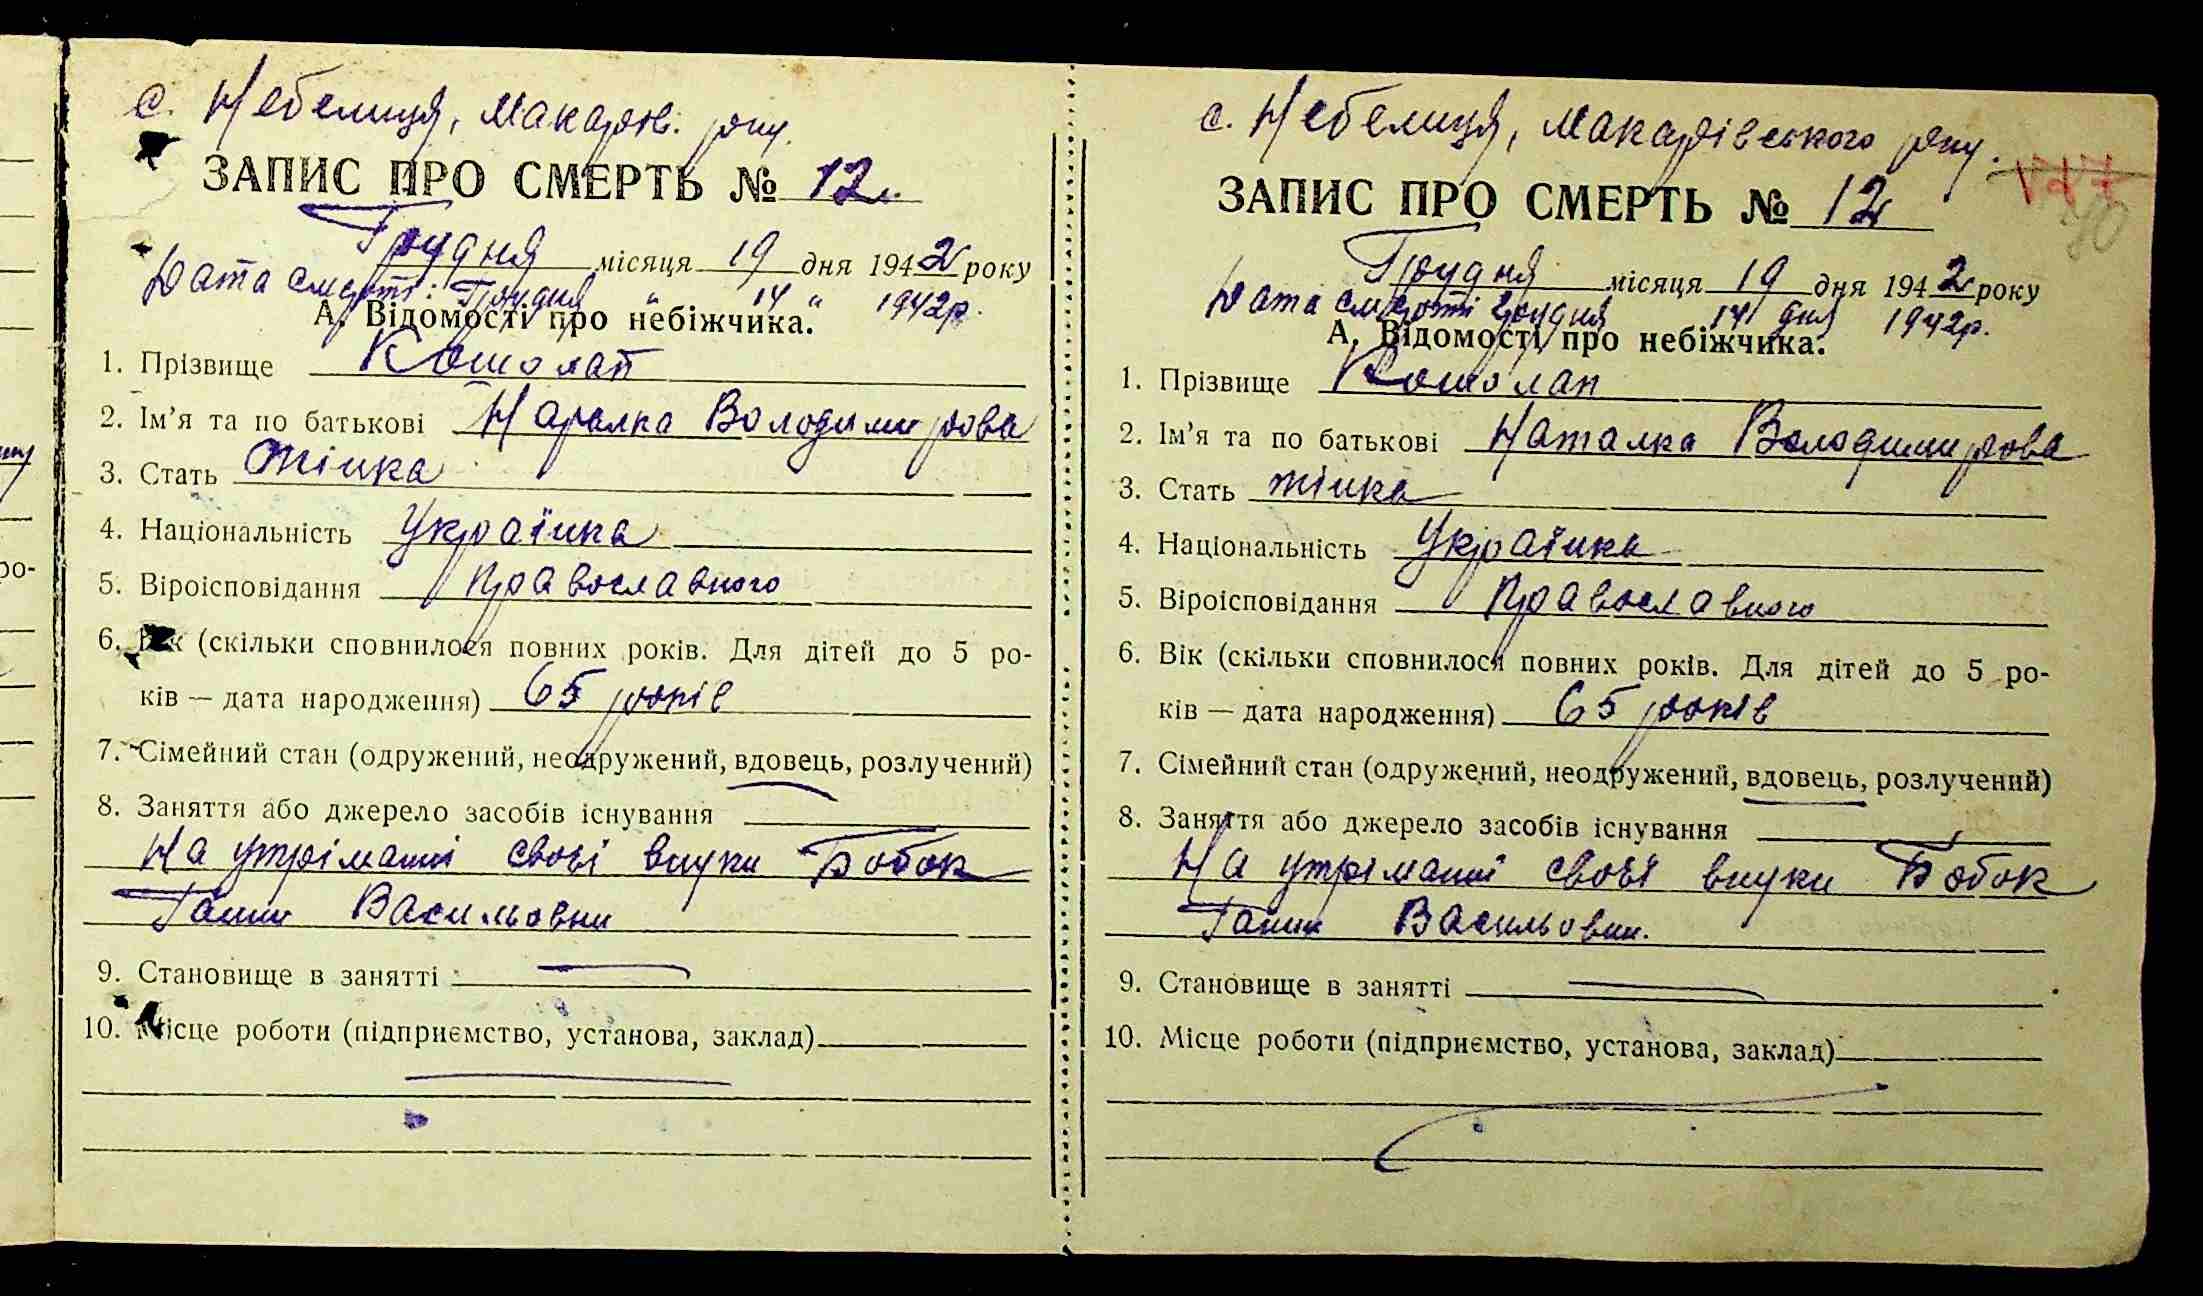 с. Небелиця, Макарів. р-ну.
ЗАПИС ПРО СМЕРТЬ № 12
Грудня місяця 19 дня 1942 року
Дата смерті: Грудня " 14 " 1942р.
А. Відомості про небіжчика.
1. Прізвище Кошолап
2. Ім'я та по батькові Наталка Володимирова
3. Стать Жінка
4. Національність Українка
5. Віроісповідання Православного
6. Вік (скільки сповнилося повних років. Для дітей до 5 ро-
ків — дата народження) 65 років
7. Сімейний стан (одружений, неодружений, вдовець, розлучений)
8. Заняття або джерело засобів існування
На утріманні своєі внуки Бобок
Ганни Васильовни
9. Становище в занятті
10. Місце роботи (підприємство, установа, заклад)
с. Небелиця, Макарівського р-ну.
ЗАПИС ПРО СМЕРТЬ № 12
Грудня місяця 19 дня 1942 року
Дата смерті грудня 14 дня 1942р.
А. Відомості про небіжчика.
1. Прізвище Кошолап
2. Ім'я та по батькові Наталка Володимирова
3. Стать жінка
4. Національність Українка
5. Віроісповідання Православного
6. Вік (скільки сповнилося повних років. Для дітей до 5 ро-
ків — дата народження) 65 років
7. Сімейний стан (одружений, неодружений, вдовець, розлучений)
8. Заняття або джерело засобів існування
На утріманні своєї внуки Бобок
Ганни Васильовни.
9. Становище в занятті
10. Місце роботи (підприємство, установа, заклад)